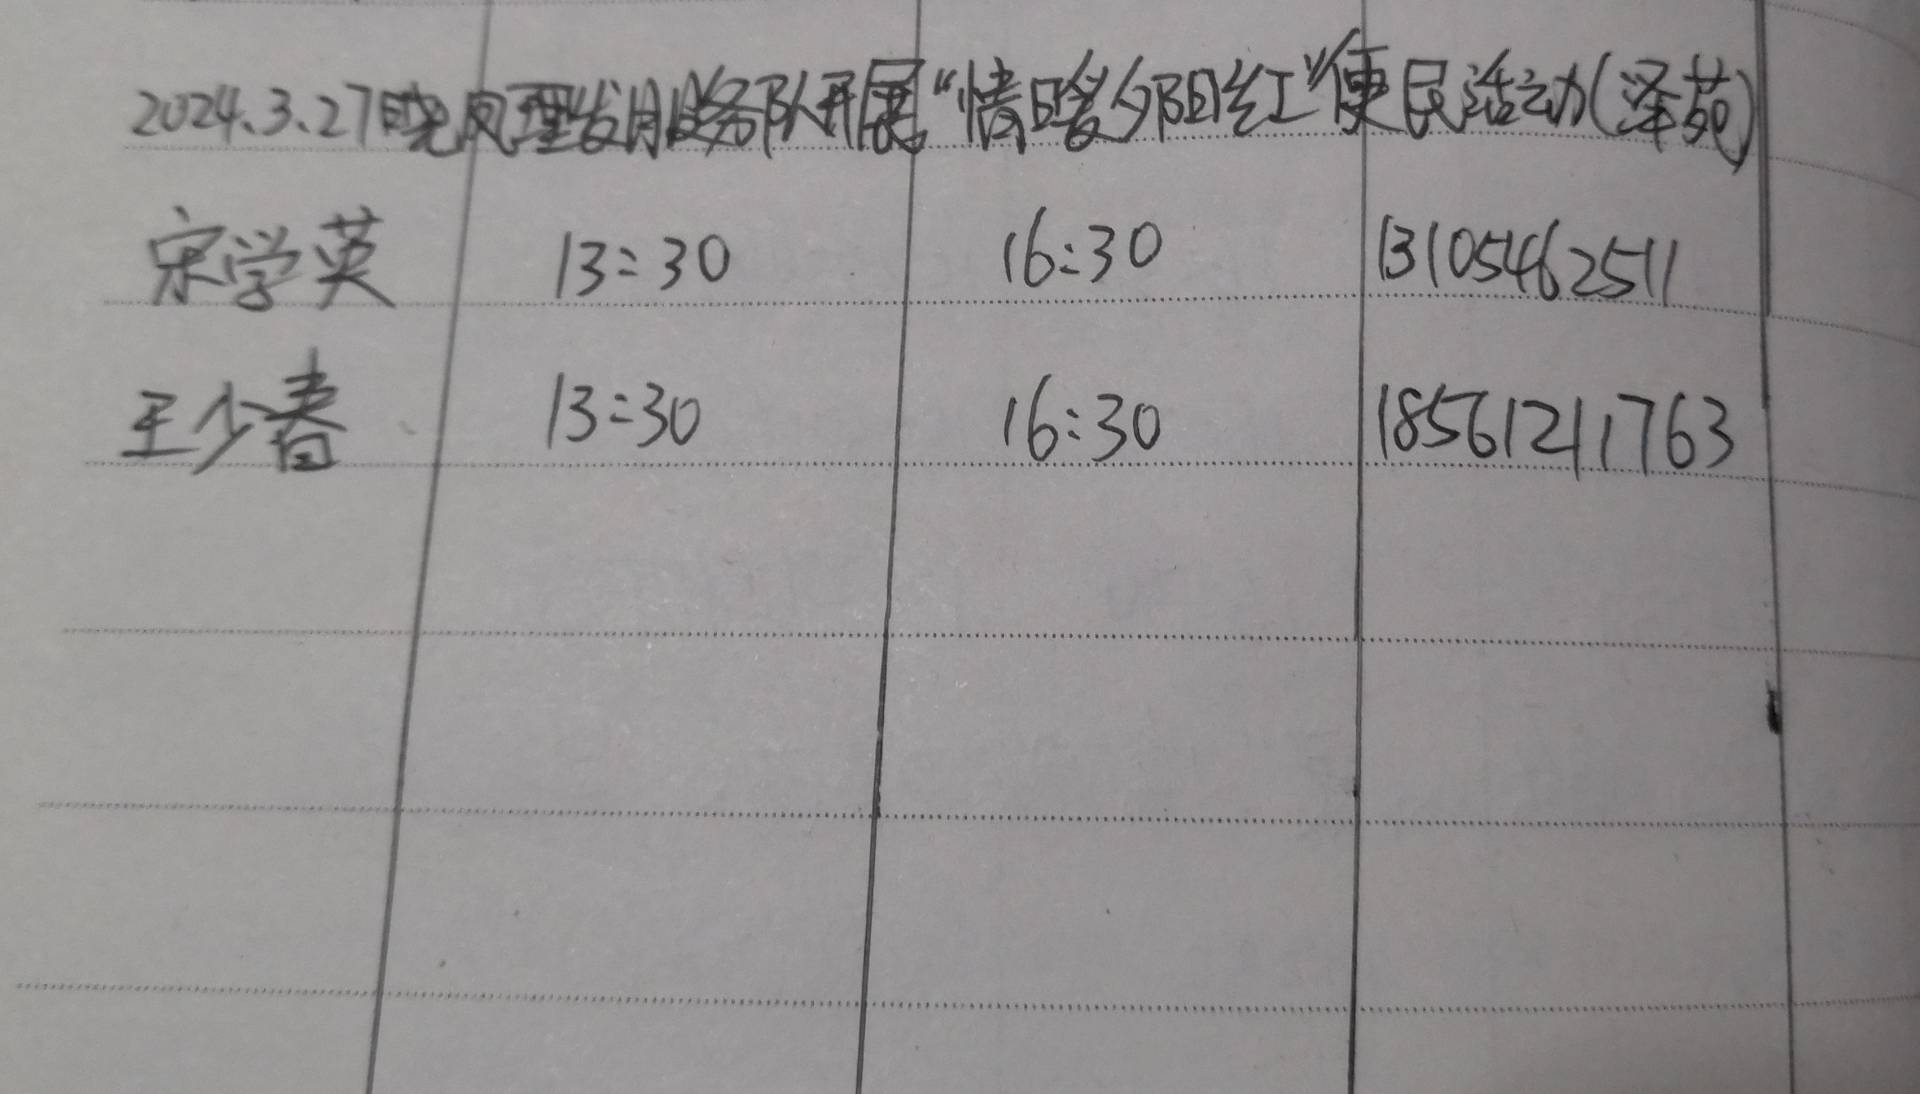 2024.3.27晓风理发服务队开展“情暖夕阳红”便民活动(泽苑)
宋学英 13:30 16:30 13105462511
王少春 13:30 16:30 18561211763